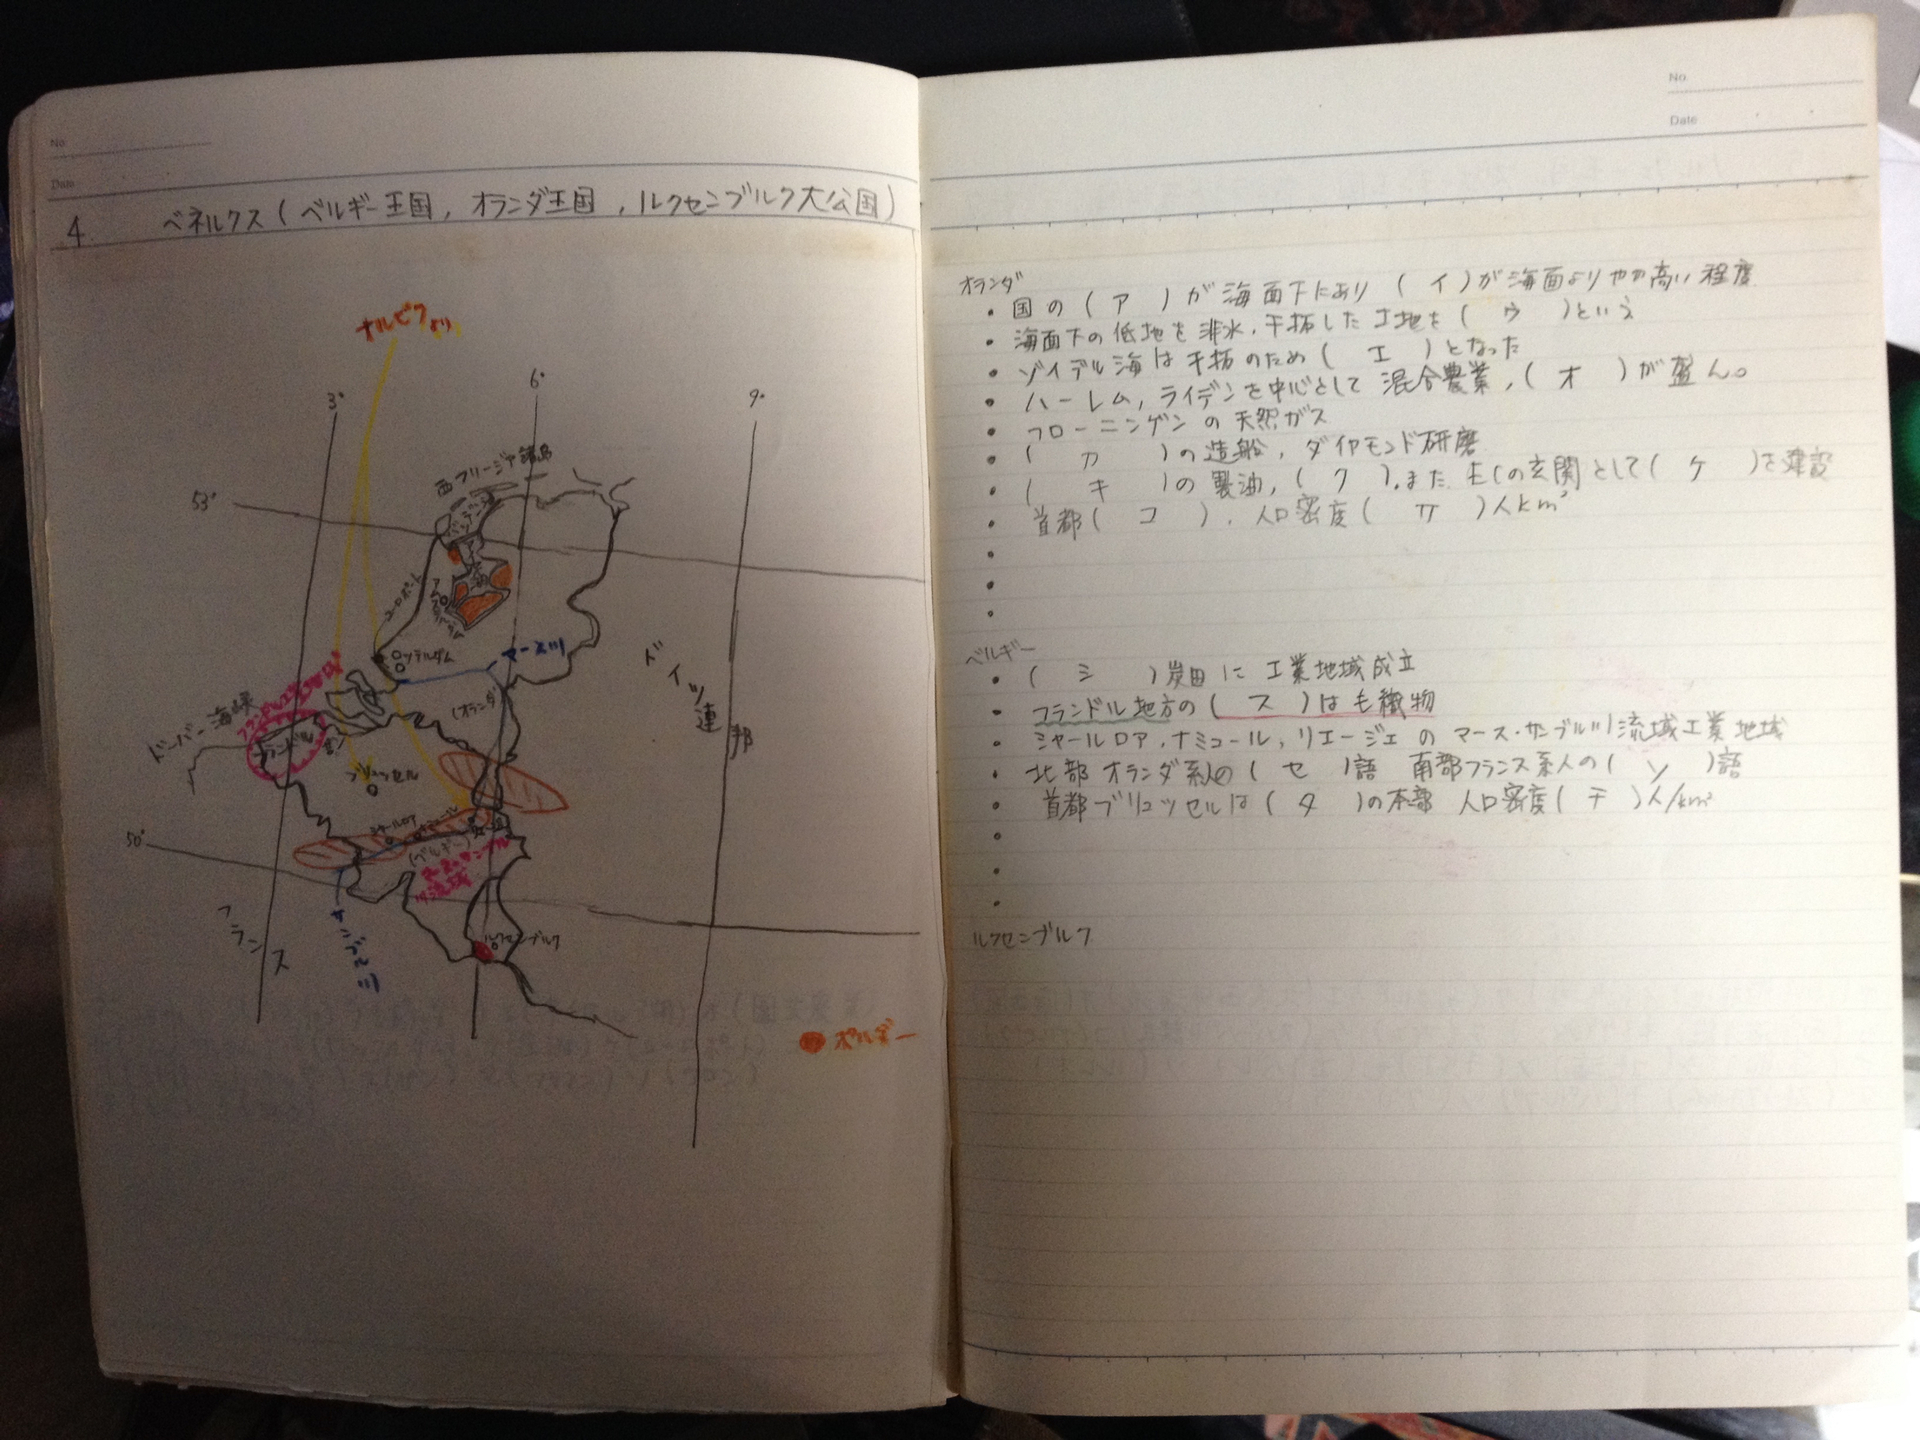 No
Date
4 ベネルクス(ベルギー王国, オランダ王国, ルクセンブルク大公国)
ナルビクより
3°
6°
9°
53°
西フリージア諸島
ユーロポート
ロッテルダム
マース川
(オランダ)
ドイツ連邦
ドーバー海峡
フランドル
ブリュッセル
(ベルギー)
50°
フランス
ルクセンブルク
ポルダー
No
Date
オランダ
・国の(ア)が海面下にあり(イ)が海面よりやや高い程度
・海面下の低地を排水,干拓した土地を(ウ)という
・ゾイデル海は干拓のため(エ)となった
・ハーレム,ライデンを中心として混合農業,(オ)が盛ん。
・フローニンゲンの天然ガス
・(カ)の造船,ダイヤモンド研磨
・(キ)の製油,(ク),また,ECの玄関として(ケ)を建設
・首都(コ),人口密度(サ)人km²
・
・
・
ベルギー
・(シ)炭田に工業地域成立
・フランドル地方の(ス)はも織物
・シャールロア,ナミュール,リエージェのマース・サンブル川流域工業地域
・北部オランダ系人の(セ)語 南部フランス系人の(ソ)語
・首都ブリュッセルは(タ)の本部 人口密度(チ)人/km²
・
・
・
ルクセンブルク